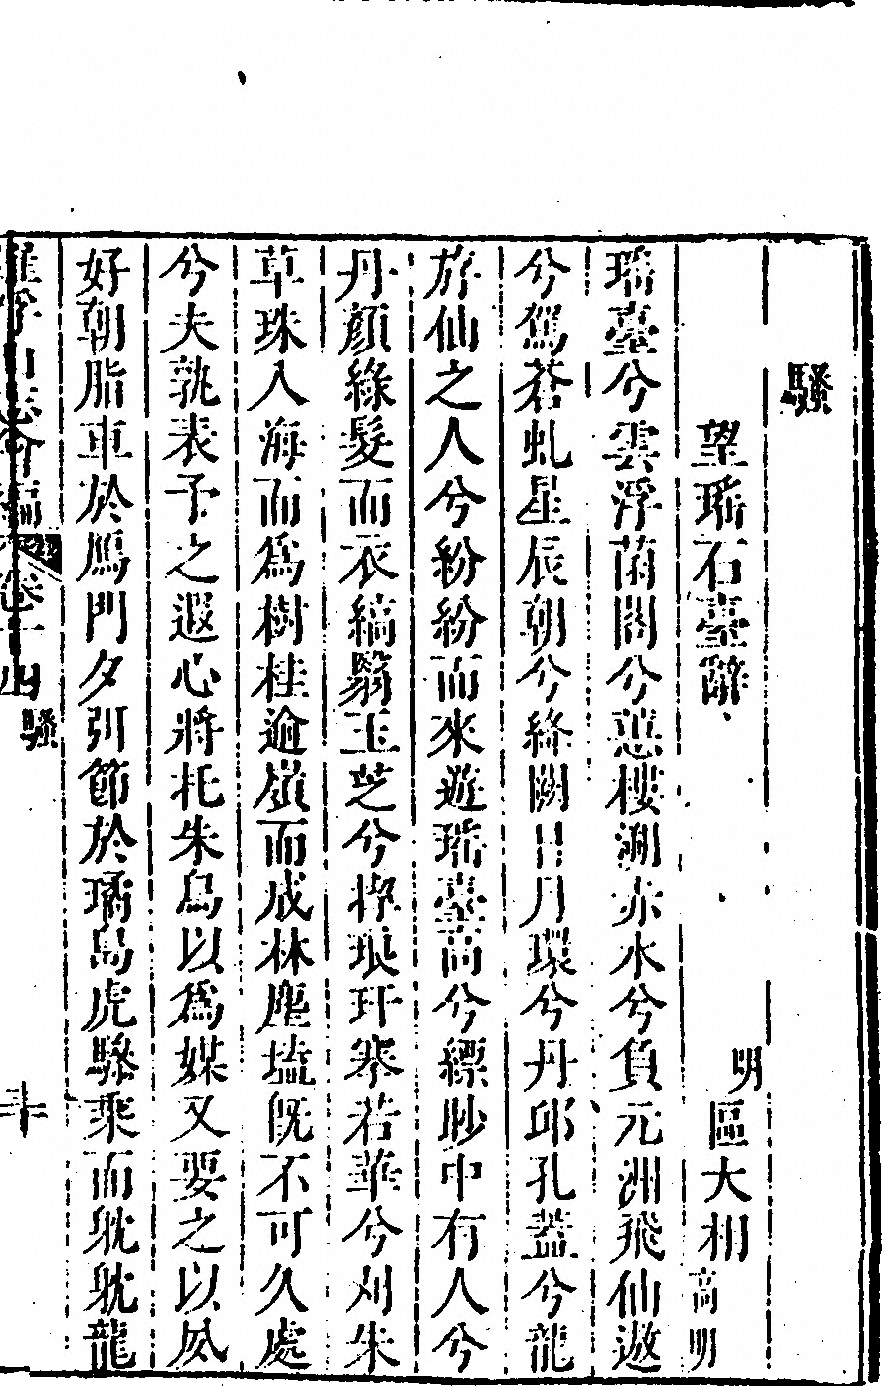 騷
望瑤石臺辭 明 區大相 高明
瑤臺兮雲浮菌閣兮蕙樓溯赤水兮負元洲飛仙遨
兮駕蒼虬星辰朝兮絳闕日月環兮丹邱孔蓋兮龍
旂仙之人兮紛紛而來遊瑤臺高兮縹眇中有人兮
丹顏綠髮而衣縞翳玉芝兮拂琅玕搴若華兮刈朱
草珠入海而爲樹桂逾嶺而成林塵壒旣不可久處
兮夫孰表予之遐心將托朱鳥以爲媒又要之以夙
好朝脂車於鴈門夕弭節於璚島虎驂乘而躭躭龍
羅浮山志會編 卷十四 騷 二十